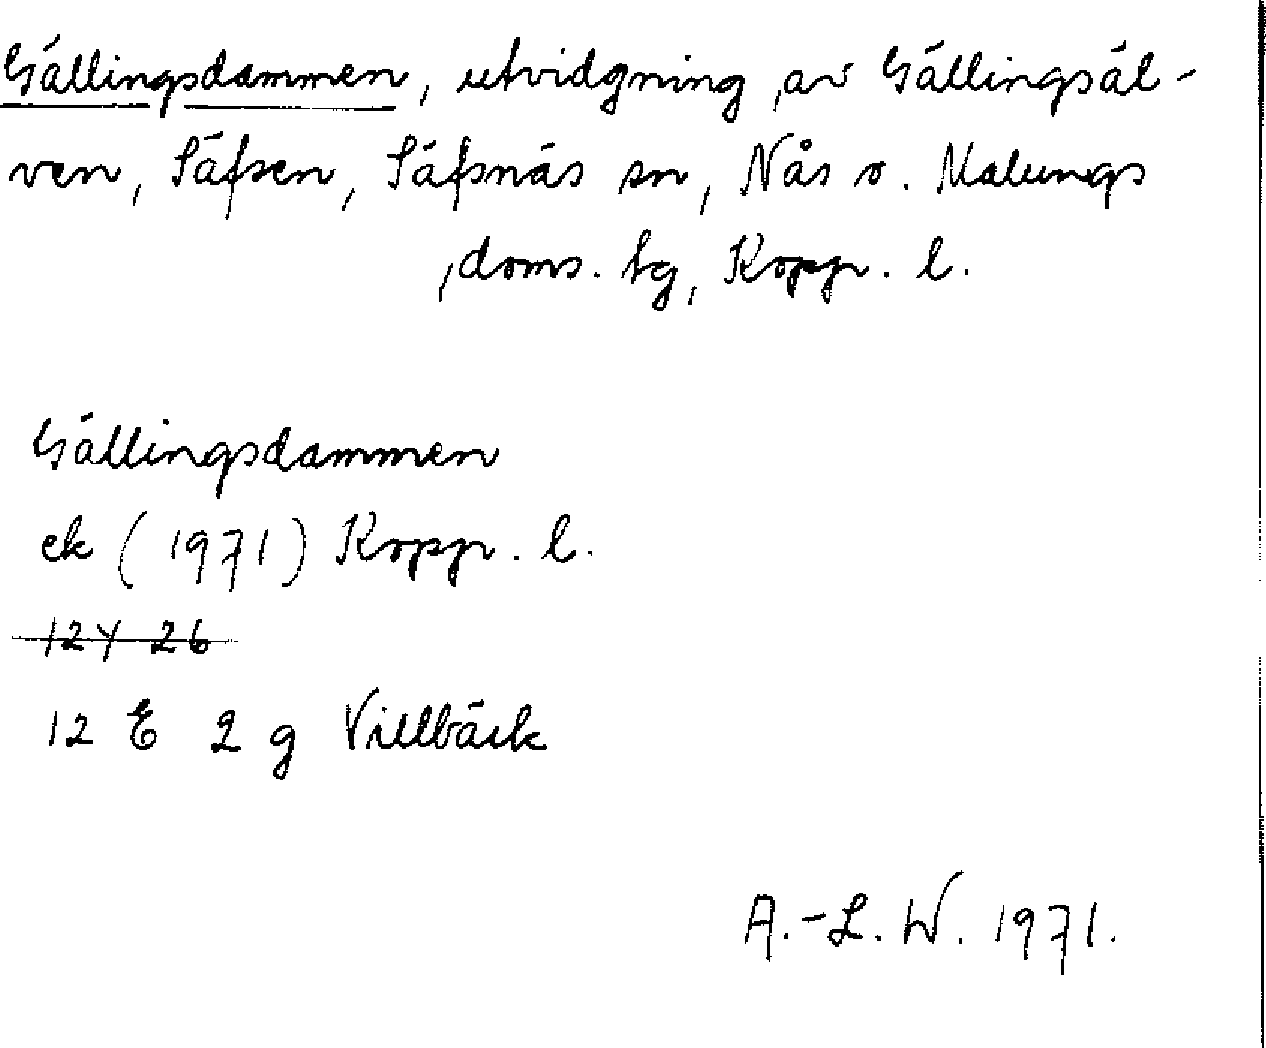 Gällingsdammen, utvidgning av Gällingsäl-
ven, Säfsen, Säfsnäs sn, Nås o. Malungs
doms. tg, Kopp. l.
Gällingsdammen
ek (1971) Kopp. l.
12Y 26
12 E 2 g Villbäck
A.-L. W. 1971.